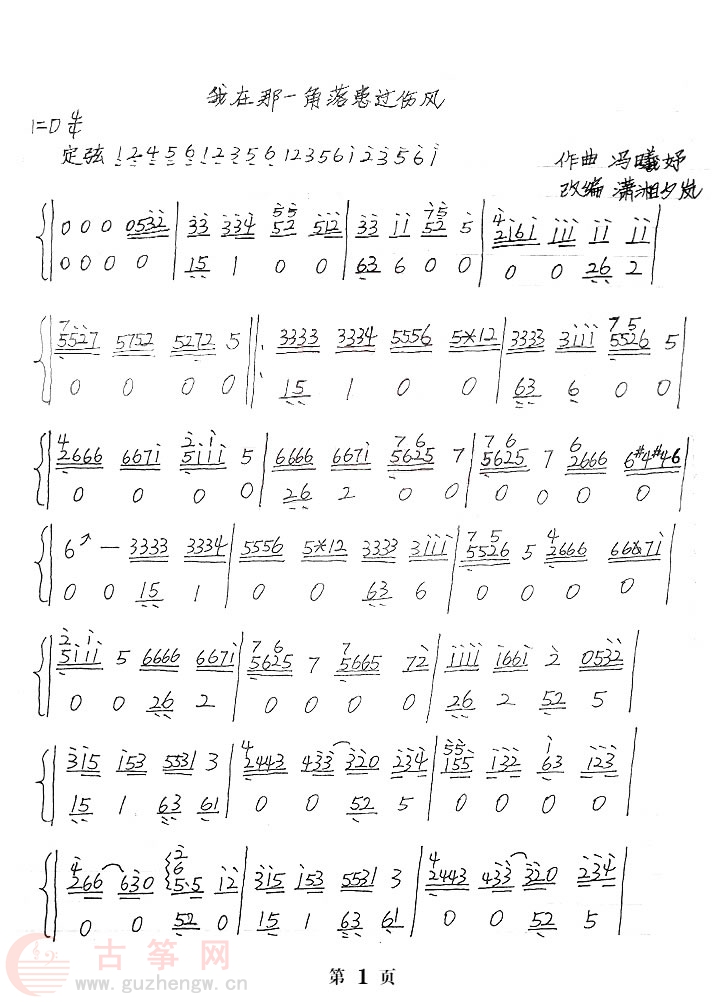 我在那一角落患过伤风
1=D 4/4
定弦 1 2 4 5 6 1 2 3 5 6 1 2 3 5 6 1 2 3 5 6 1
作曲 冯曦妤
改编 潇湘夕岚
0 0 0 0532 | 33 334 52 512 | 33 11 52 5 | 2161 111 11 11
0 0 0 0 | 15 1 0 0 | 63 6 0 0 | 0 0 26 2
5527 5752 5272 5 | 3333 3334 5556 5*12 | 3333 3111 5526 5
0 0 0 0 | 15 1 0 0 | 63 6 0 0
2666 6671 5111 5 | 6666 6671 5625 7 | 5625 7 2666 6#4#46
0 0 0 0 | 26 2 0 0 | 0 0 0 0
6 — 3333 3334 | 5556 5*12 3333 3111 | 5526 5 2666 6671
0 0 15 1 | 0 0 63 6 | 0 0 0 0
5111 5 6666 6671 | 5625 7 5665 72 | 1111 1661 2 0532
0 0 26 2 | 0 0 0 0 | 26 2 52 5
315 153 5531 3 | 2443 433 320 234 | 155 132 63 123
15 1 63 61 | 0 0 52 5 | 0 0 0 0
266 630 5·5 12 | 315 153 5531 3 | 2443 433 320 234
0 0 52 0 | 15 1 63 61 | 0 0 52 5
古筝网
www.guzhengw.cn
第 1 页